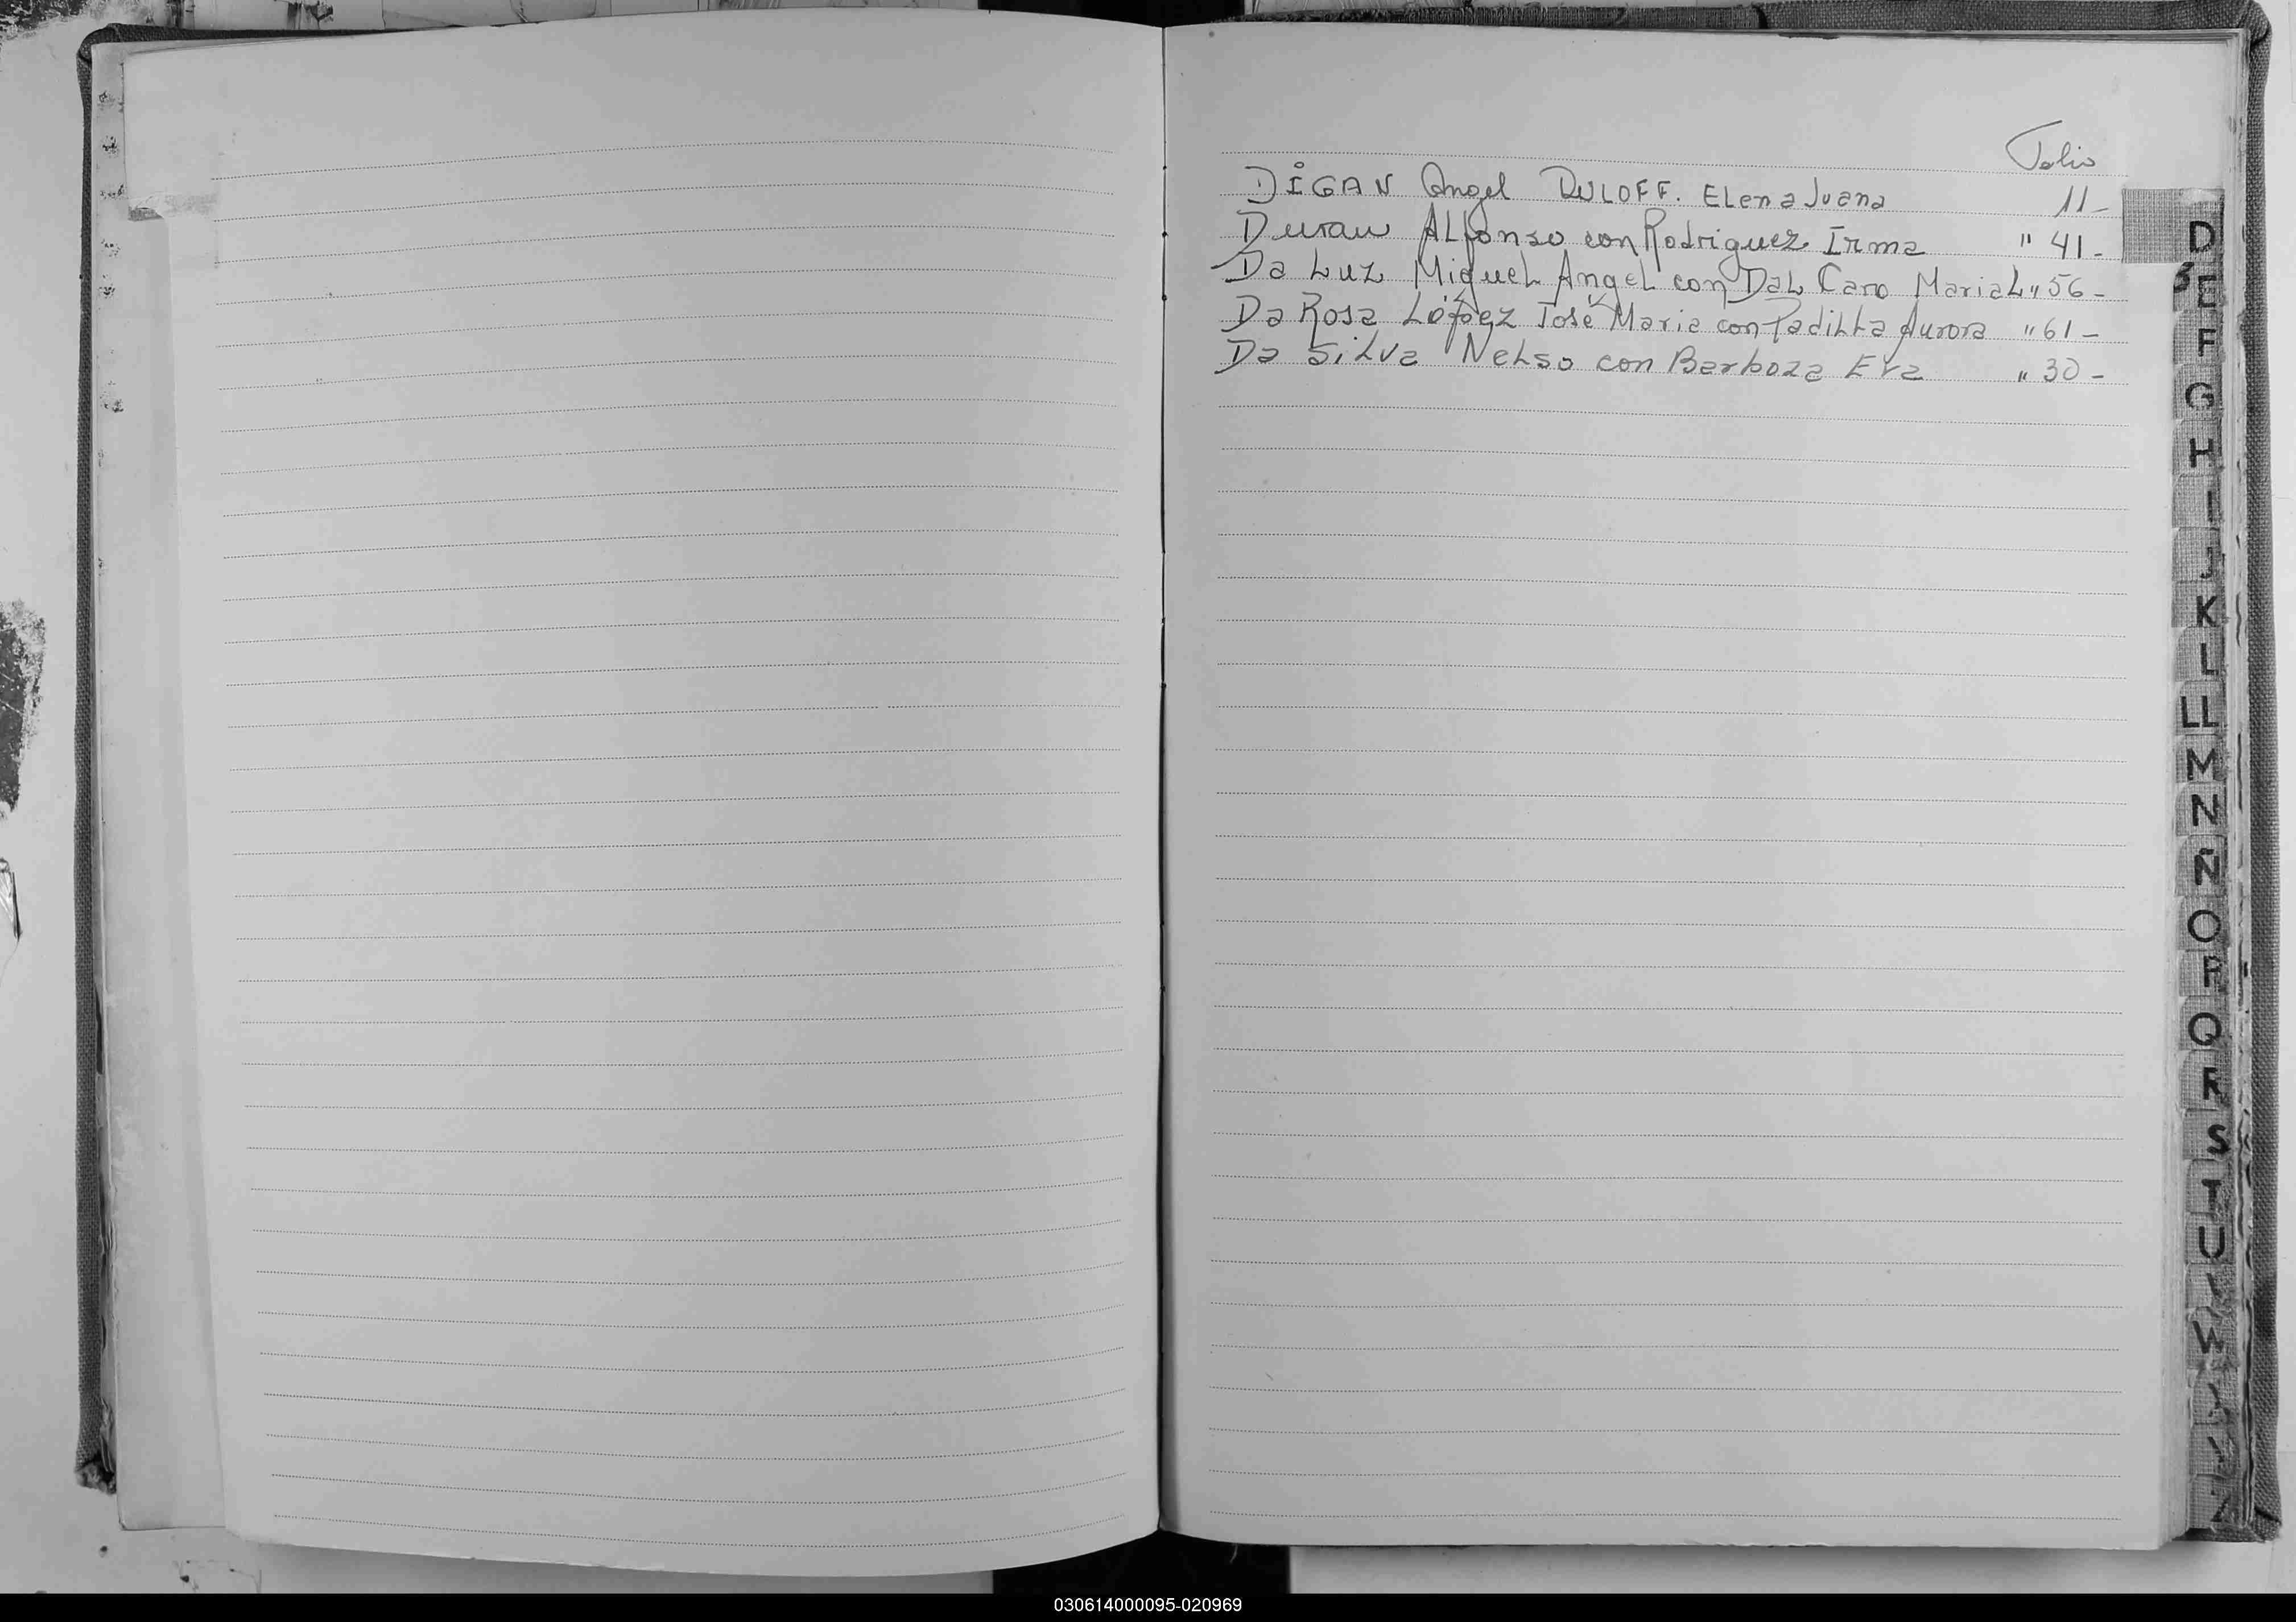 Folio
DIGAN Angel DULOFF. Elena Juana 11-
Duran Alfonso con Rodriguez Irma " 41-
Da Luz Miguel Angel con Dal Caro Maria L " 56-
Da Rosa López José Maria con Padilla Aurora " 61-
Da Silva Nelso con Barboza Eva " 30-
D
E
F
G
H
I
J
K
L
LL
M
N
Ñ
O
P
Q
R
S
T
U
V
W
Z
030614000095-020969